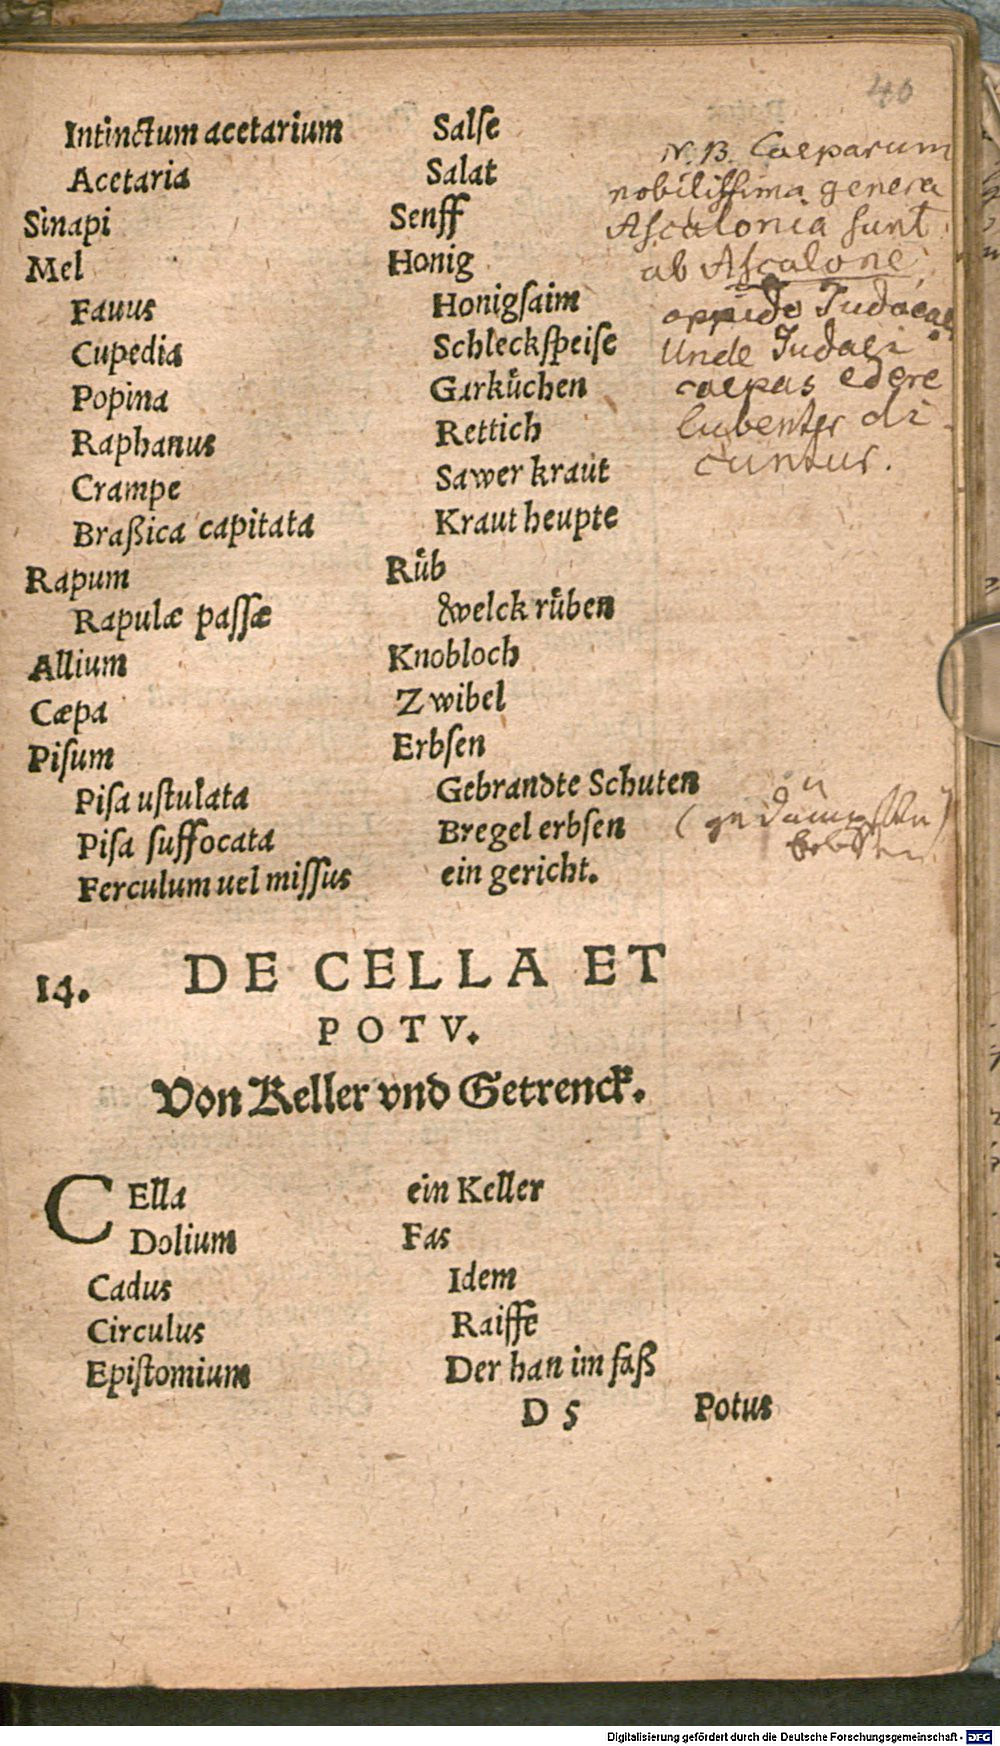 40
Intinctum acetarium Salſe
Acetaria Salat
Sinapi Senff
Mel Honig
Fauus Honigſaim
Cupedia Schleckſpeiſe
Popina Garkuͤchen
Raphanus Rettich
Crampe Sawer kraut
Braßica capitata Kraut heupte
Rapum Ruͤb
Rapulæ paſſæ welck ruͤben
Allium Knobloch
Cæpa Zwibel
Piſum Erbſen
Piſa uſtulata Gebrandte Schuten
Piſa ſuffocata Bregel erbſen
Ferculum uel miſſus ein gericht.
N.B. Caeparum
nobiliſſima genera
Aſcalonia ſunt
ab Aſcalone
oppido Judaeae
Unde Judaei
caepas edere
lubenter di
cuntur.
14. DE CELLA ET
POTV.
Von Keller vnd Getrenck.
CElla ein Keller
Dolium Fas
Cadus Idem
Circulus Raiffe
Epiſtomium Der han im faß
D 5 Potus
Digitalisierung gefördert durch die Deutsche Forschungsgemeinschaft - DFG